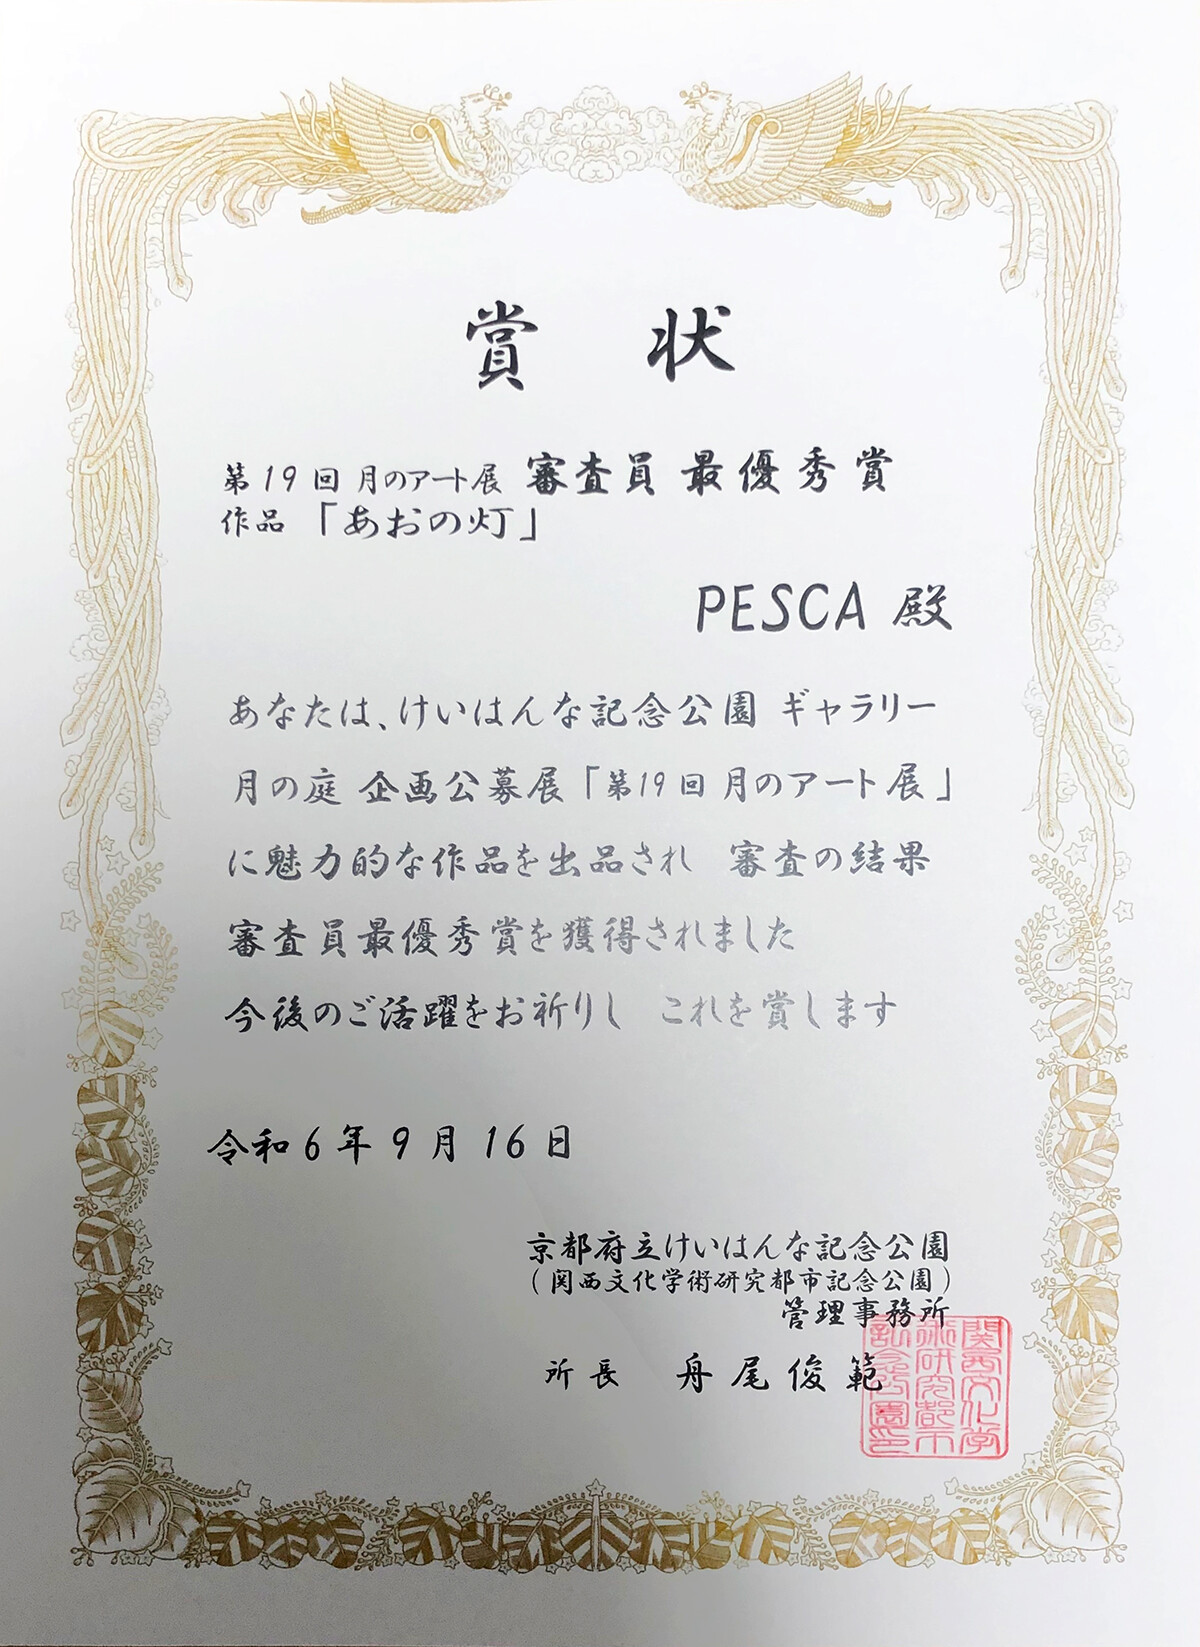 賞状
第19回 月のアート展 審査員 最優秀賞
作品 「あおの灯」
PESCA 殿
あなたは、けいはんな記念公園 ギャラリー
月の庭 企画公募展「第19回 月のアート展」
に魅力的な作品を出品され 審査の結果
審査員最優秀賞を獲得されました
今後のご活躍をお祈りし これを賞します
令和6年9月16日
京都府立けいはんな記念公園
(関西文化学術研究都市記念公園)
管理事務所
所長 舟尾俊範
関西文化学
術研究都市
記念公園印